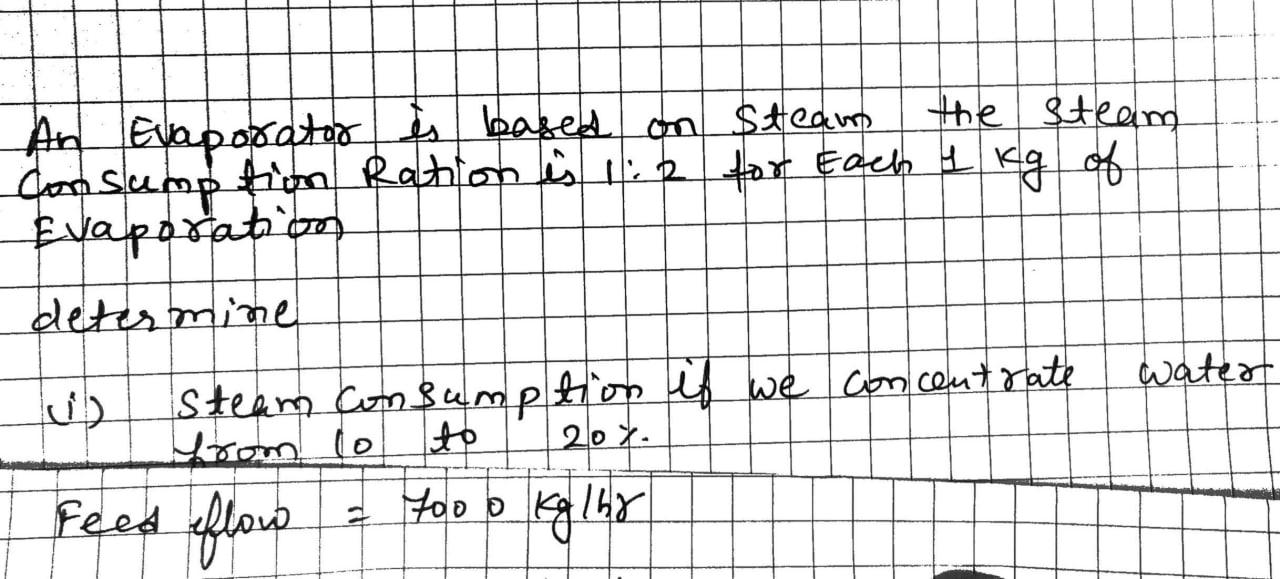 An Evaporator is based on Steam the steam
Consumption Ration is 1:2 for Each 1 Kg of
Evaporation
determine
(i) steam Consumption if we concentrate water
from 10 to 20%.
Feed flow = 7000 Kg/hr